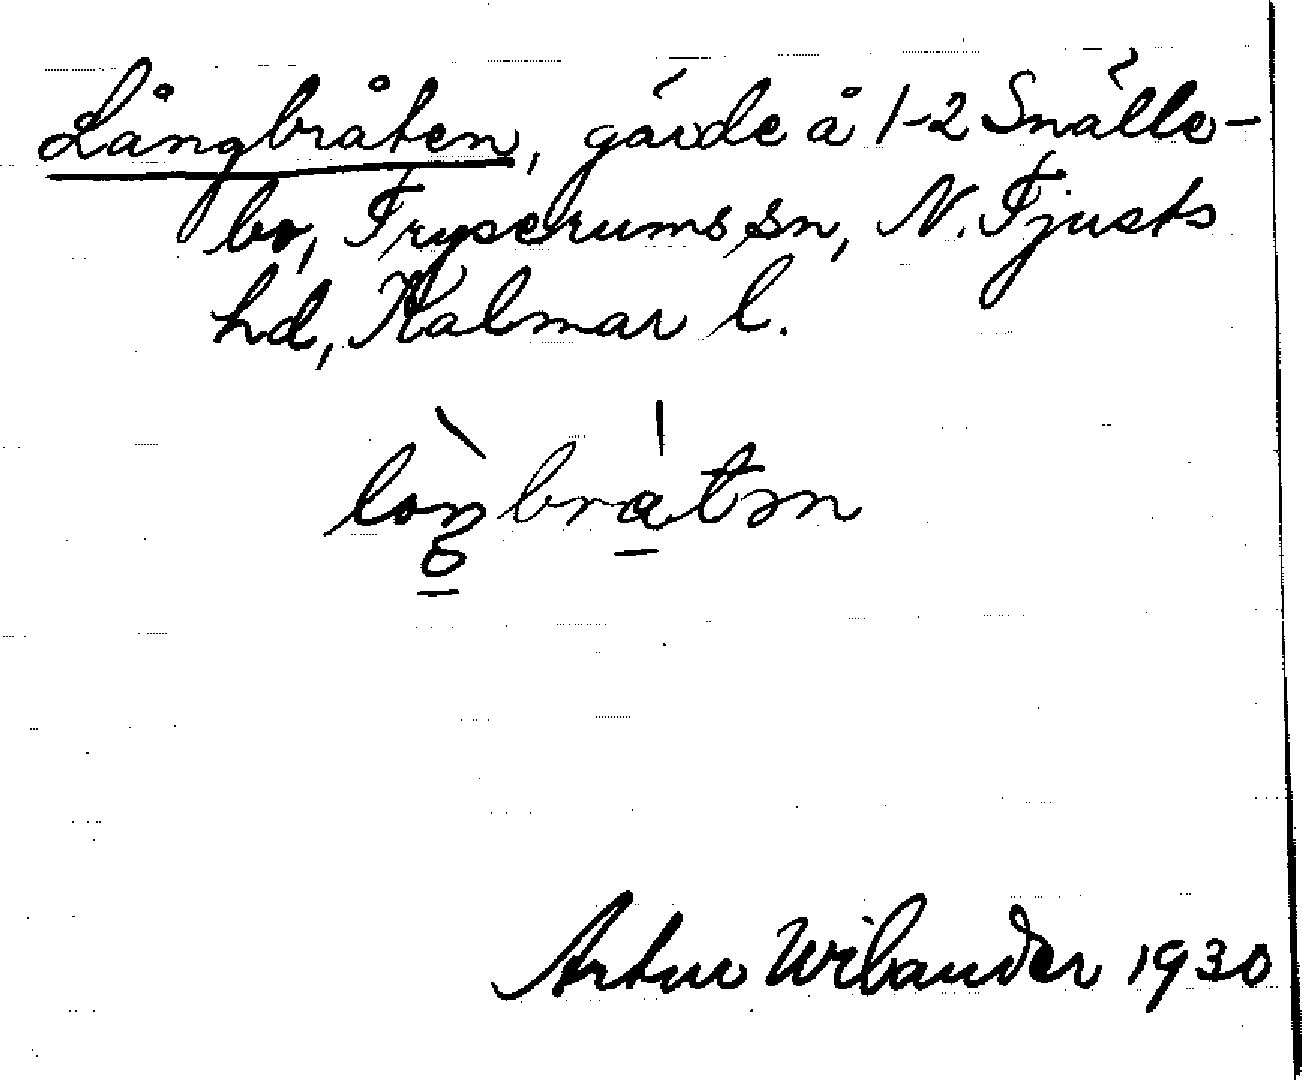 Långbråten, gärde å 1-2 Snälle-
bo, Tryserums sn, N. Tjusts
hd, Kalmar l.
Artur Wilander 1930